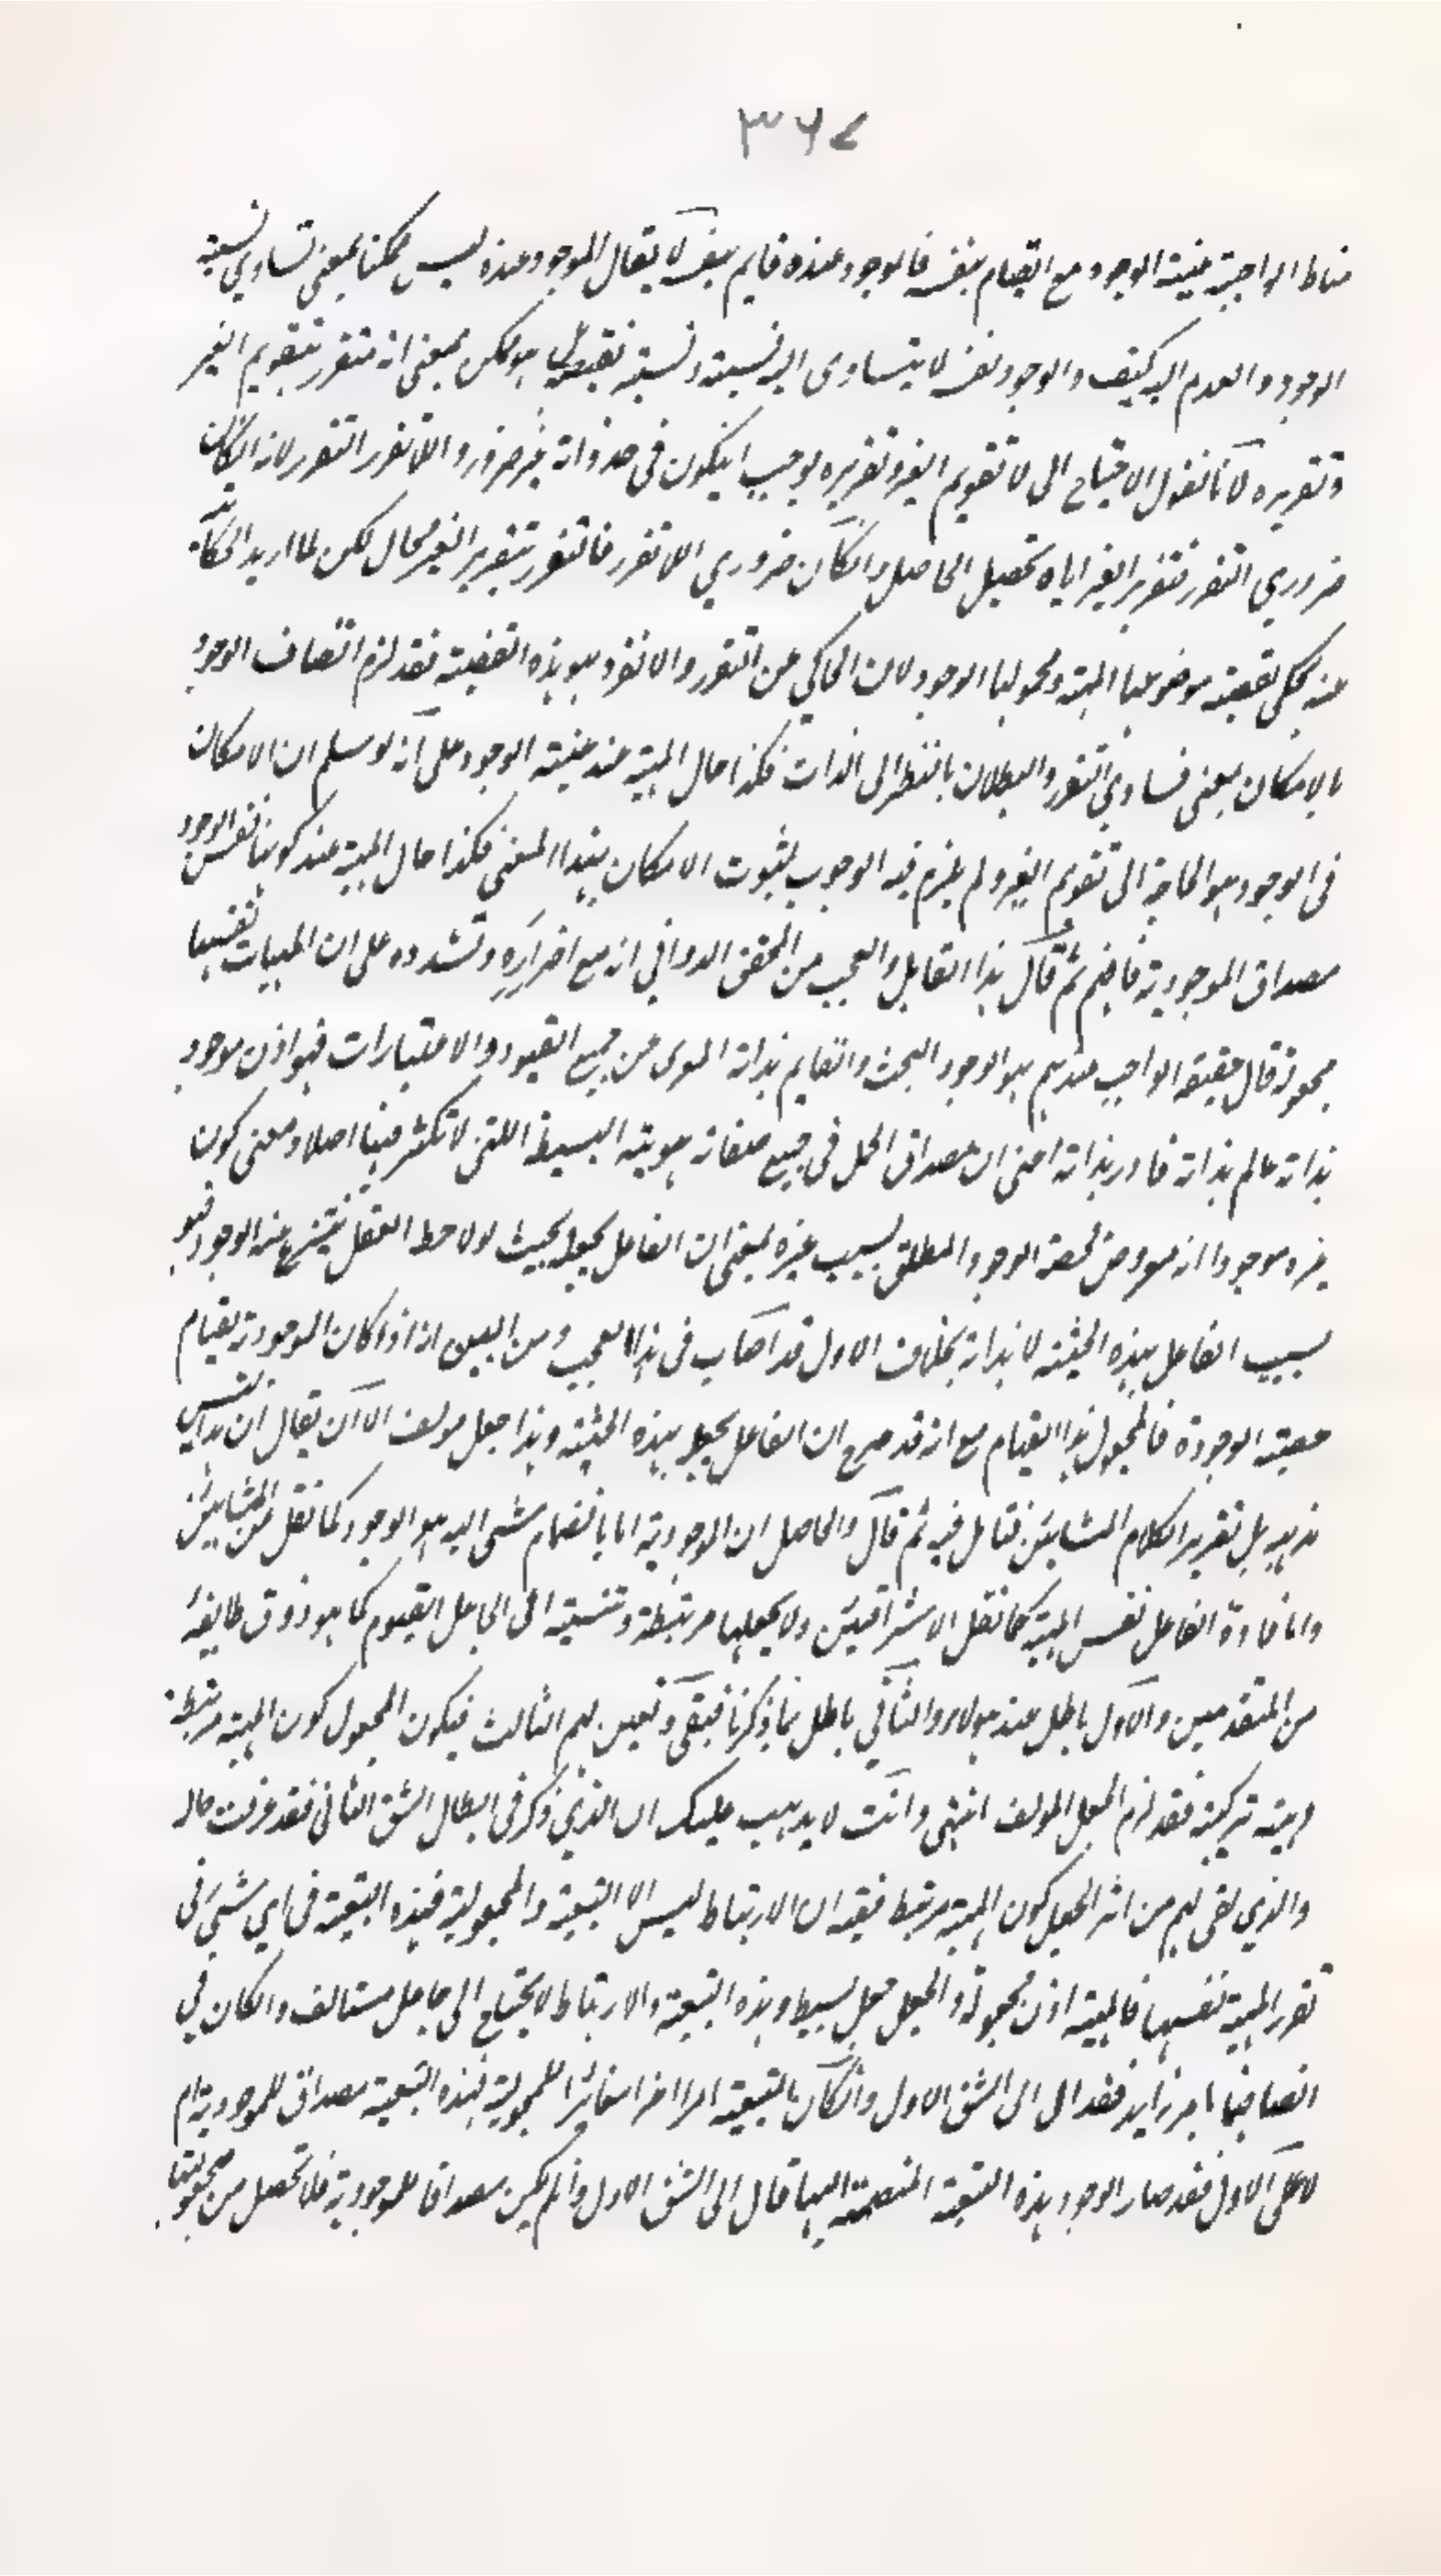 ٣٦٧
مناط الواجبية عينية الوجود مع القيام بنفسه فالوجود عنده قايم بنفسه لا يقال الموجود عنده ليس ممكنا بمعنى تساوي نسبة
الوجود والعدم اليه كيف والوجود نفسه لا يتساوى اليه نسبته ونسبة نقيضه بل هو ممكن بمعنى انه متقرر بتقويم الغير
وتقريره لانا نقول الاحتياج الى تقويم الغير وتقريره يوجب ان يكون في حد ذاته غير ضرور واللاتقرر التقرر لانه ان كان
ضروري التقرر فتقرير الغير اياه تحصيل الحاصل وان كان ضروري اللاتقرر فالتقرر بتقرير الغير محال لكن لما اريد الحكاية
عنه يحكى بقضية موضوعها المهية ومحمولها الوجود لان الحاكي عن التقرر واللاتقرر هو هذه القضية فقد لزم اتصاف الوجود
بالامكان بمعنى تساوي التقرر والبطلان بالنظر الى الذات فكذا حال المهية عند عينية الوجود على انه لو سلم ان الامكان
فى الوجود هو الحاجة الى تقويم الغير ولم يلزم فيه الوجوب لثبوت الامكان بهذا المعنى فكذا حال المهية عند كونها نفس الوجود
مصداق الموجودية فافهم ثم قال هذا القايل والعجب من المحقق الدواني انه مع اصراره وتشدده على ان المهيات نفسها
مجعولة قال حقيقة الواجب عندهم هو الوجود البحت والقايم بذاته المعرى عن جميع القيود والاعتبارات فهو اذن موجود
بذاته عالم بذاته قادر بذاته اعنى ان مصداق الحمل فى جميع صفاته هويته البسيطة اللتى لا تكثر فيها اصلا ومعنى كون
غيره موجودا انه معروض لحصة الوجود المطلق بسبب غيره بمعنى ان الفاعل يجعله بحيث لو لاحظ العقل ينتزع عنه الوجود فهو
بسبب الفاعل بهذه الحيثية لا بذاته بخلاف الاول قد اصاب فى هذا العجب ومن البين انه اذا كان الموجودية بقيام
حصة الوجود فالمجعول هذا القيام مع انه قد صرح ان الفاعل يجعله بهذه الحيثية وهذا جعل مولف الا ان يقال ان هذا ليس
مذهبه بل تقرير الكلام المشايين فتامل فيه ثم قال والحاصل ان الوجودية اما بانضمام شى اليه هو الوجود كما نقل من المشايين
واما فادة الفاعل نفس المهية كما نقل الاشراقيين ولا يجعلها مرتبطة ومنتسبة الى الجاعل القيوم كما هو ذوق طايفة
من المتقدمين والاول باطل عند هولاء والثاني باطل بما ذكرنا فبقى وتعين لهم الثالث فيكون المجعول كون المهية مرتبطة
وهيئة تركيبية فقد لزم الجعل المولف انتهى وانت لا يذهب عليك ان الذي ذكر فى ابطال الشق الثانى فقد عرفت حاله
والذي بقى لهم من اثر الجعل كون المهية مرتبط ففيه ان الارتباط ليس الا التبعية والمجعولية فهذه التبعية فى اي شىء فى
تقرر المهية نفسها فالمهية اذن مجعولة والجعل جعل بسيط وهذه التبعية والارتباط لا يحتاج الى جاعل مستانف وان كان في
اتصافها بامر زايد فقد ال الى الشق الاول وان كان بالتبعية امرا اخر مغايرا للمجعولية فهذه التبعية مصداق للموجودية ام
لا على الاول فقد صار الوجود هذه التبعية المنضمة اليها فال الى الشق الاول وان لم يكن مصداقا للموجودية فلا تحصل من مجعوليتها